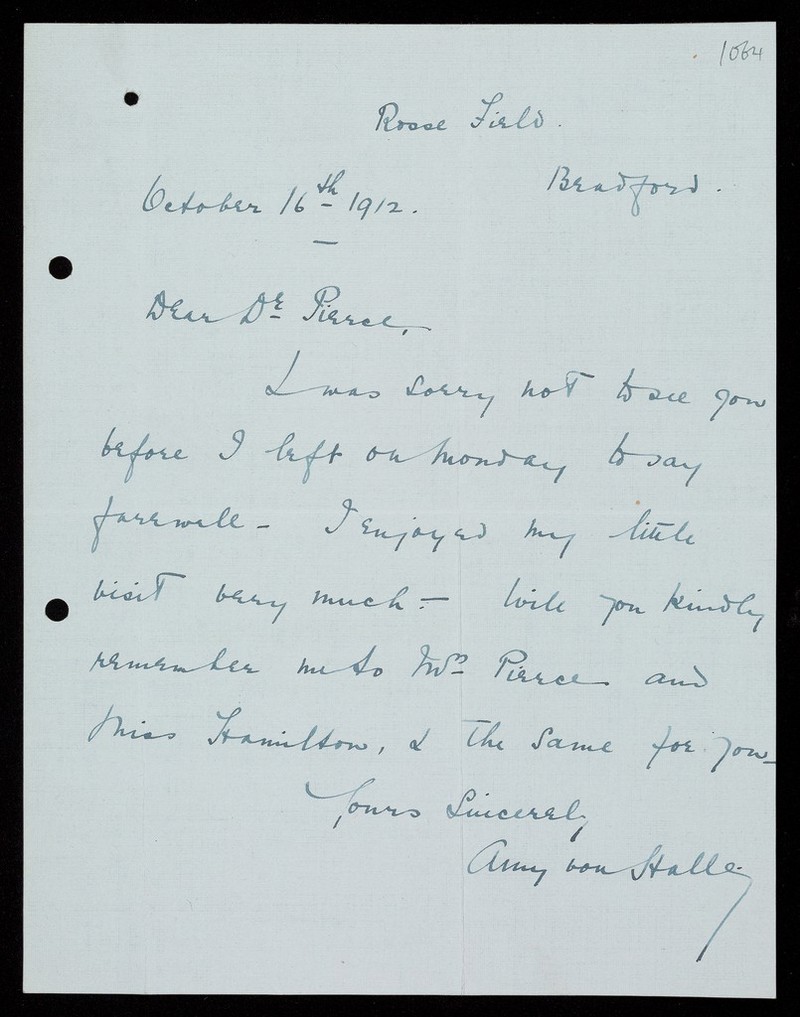 1064
Rosse Field.
Bradford.
October 16th 1912.
Dear Dr Pierce,
I was sorry not to see you
before I left on Monday to say
farewell - I enjoyed my little
visit very much - Will you kindly
remember me to Mrs Pierce and
Miss Hamilton, & the same for you -
Yours Sincerely
Amy von Halle.